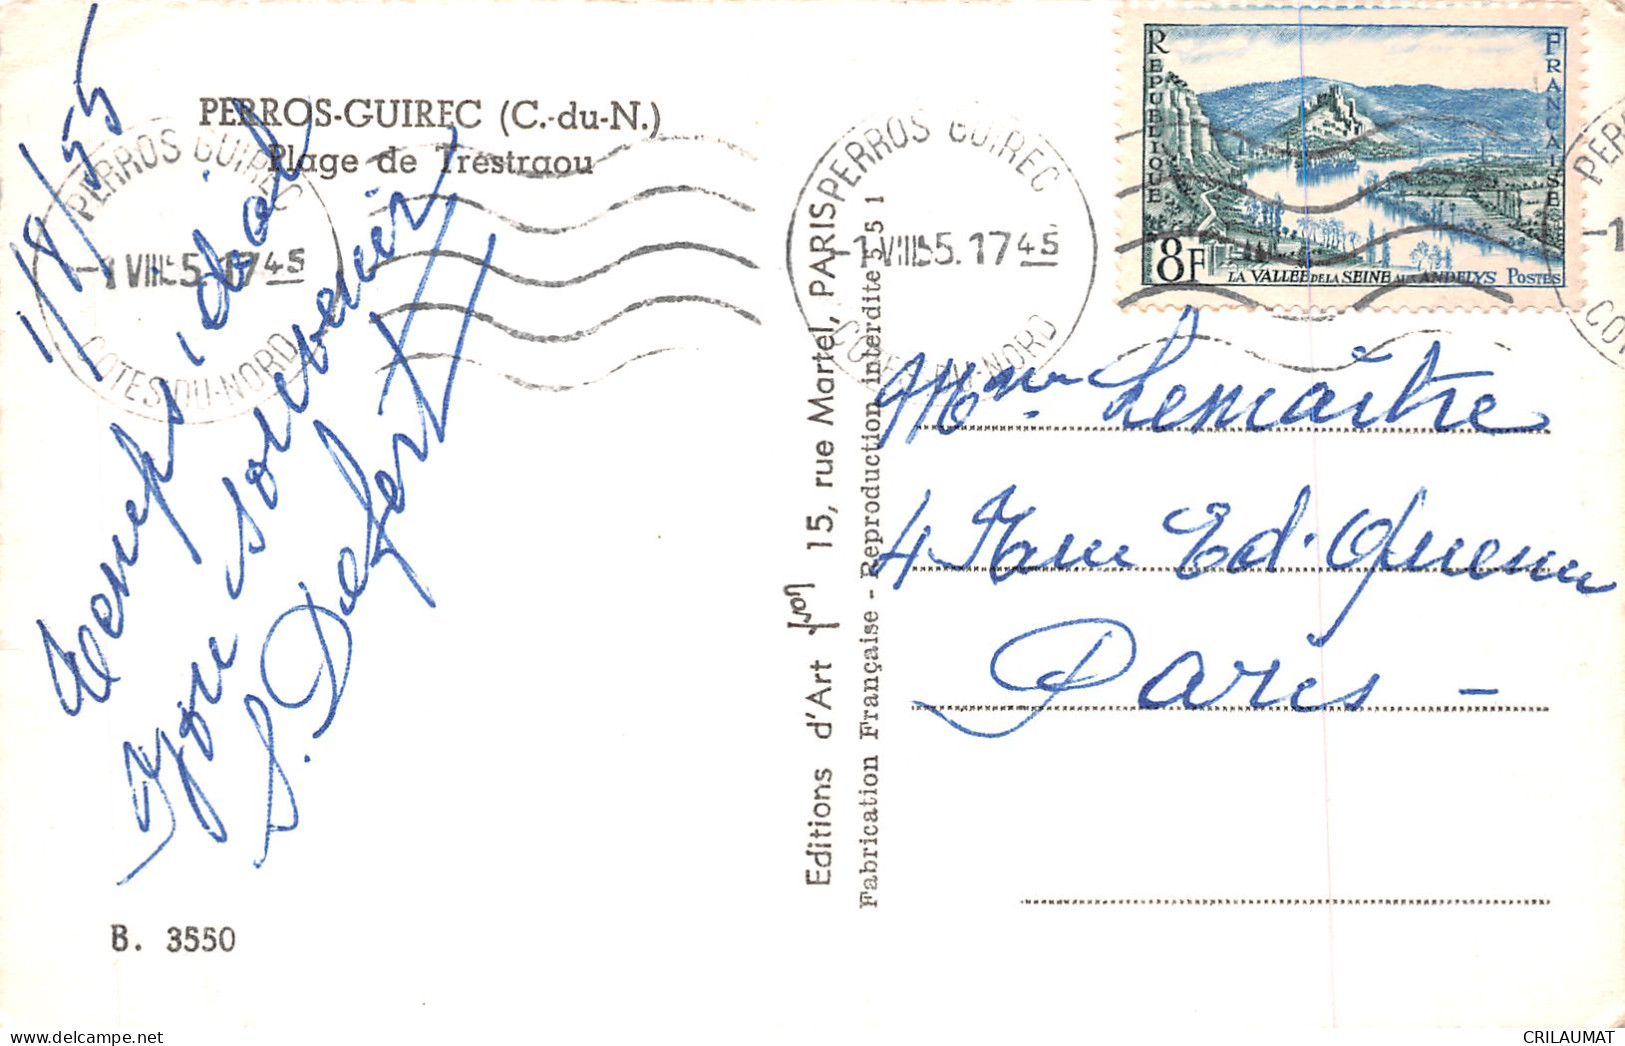 PERROS-GUIREC (C.-du-N.)
Plage de Trestraou
1/8/55
temps idéal
bon souvenir
S. Defert
PERROS GUIREC
-1 VIII 55. 17 45
COTES-DU-NORD
B. 3550
Editions d'Art Yvon 15, rue Martel, PARIS
Fabrication Française - Reproduction interdite 5 5 1
PERROS GUIREC
-1 VIII 55. 17 45
COTES-DU-NORD
REPUBLIQUE FRANÇAISE
8F
LA VALLÉE DE LA SEINE AUX ANDELYS POSTES
Mme Lemaître
4 Rue Ed. Quenu
Paris -
CRILAUMAT